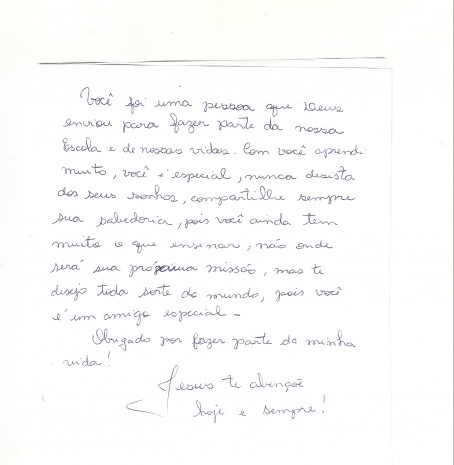 Você foi uma pessoa que Deus
enviou para fazer parte da nossa
Escola e de nossas vidas. Com você aprendi
muito, você é especial, nunca desista
dos seus sonhos, compartilhe sempre
sua sabedoria, pois você ainda tem
muito o que ensinar, não onde
será sua próxima missão, mas te
desejo toda sorte do mundo, pois você
é um amigo especial -
Obrigado por fazer parte da minha
vida!
Jesus te abençoe
hoje e sempre!